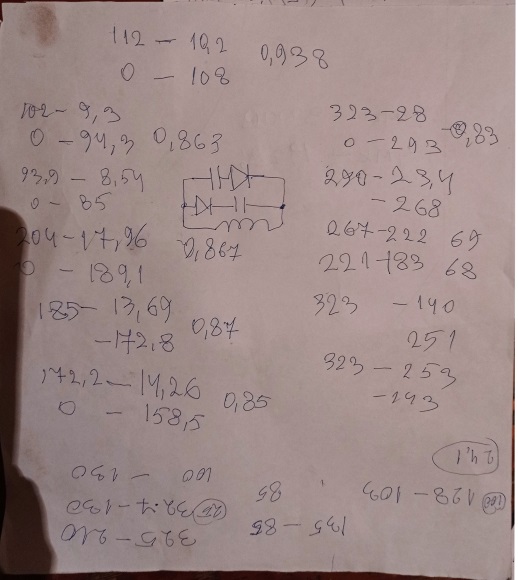 112 - 10,2
0 - 108
0,938
102 - 9,3
0 - 94,3 0,863
93,9 - 8,54
0 - 85
204 - 17,96
0 - 189,1
0,867
185 - 13,69
- 172,8
0,87
172,2 - 14,26
0 - 158,5
0,85
323 - 28
0 - 293 0,83
290 - 23,4
- 268
267 - 222 69
221 - 183 68
323 - 140
251
323 - 253
- 193
24,1
325 - 210
327 - 130
100 - 130
135 - 85
85
128 - 103